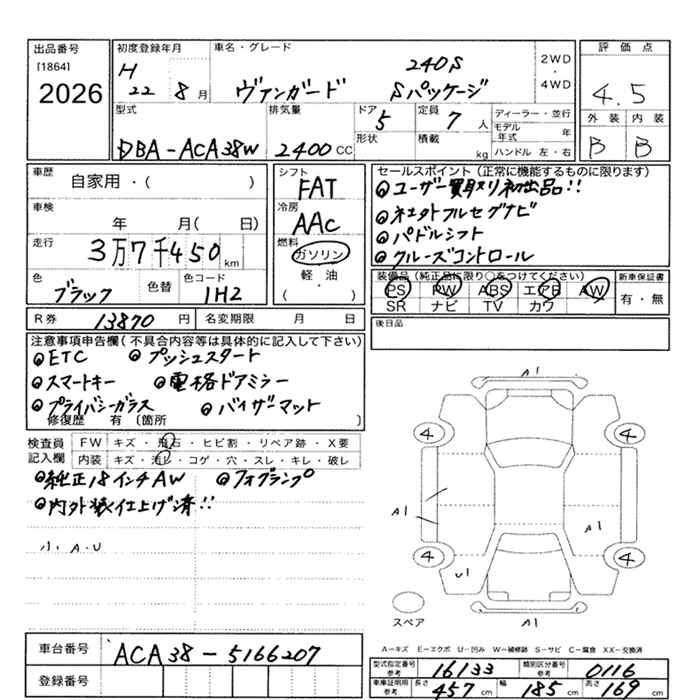 出品番号
[1864]
2026
初度登録年月
H
22 8 月
車名・グレード
240S
ヴァンガード Sパッケージ
2WD
・
4WD
評価点
4.5
外装 内装
B B
型式
DBA-ACA38W
排気量
2400 CC
ドア
5
形状
定員
7 人
積載
kg
ディーラー・並行
モデル
年式 年
ハンドル 左・右
車歴
自家用・( )
車検
年 月( 日)
走行
3万7千450 km
色
ブラック
色替
色コード
1H2
シフト
FAT
冷房
AAC
燃料
ガソリン
軽・油
( )
セールスポイント(正常に機能するものに限ります)
◎ユーザー買取り初出品!!
◎ネオタトフルセグナビ
◎パドルシフト
◎クルーズコントロール
装備品(純正品に限り○をつけてください)
PS PW ABS エアB AW
SR ナビ TV カワ
新車保証書
有・無
R券 13870 円
名変期限 月 日
後日品
注意事項申告欄(不具合内容等は具体的に記入して下さい)
◎ETC ◎プッシュスタート
◎スマートキー ◎電格ドアミラー
◎プライバシーガラス ◎バイザーマット
修復歴 有〔箇所 〕
検査員
記入欄
FW キズ・飛石・ヒビ割・リペア跡・X要
内装 キズ・汚レ・コゲ・穴・スレ・キレ・破レ
◎純正18インチAW ◎フォグランプ
◎内外装仕上げ済!!
小A.U
A1
4 4
A1
A1
4 4
U1
スペア
A1
A=キズ E=エクボ U=凹み W=補修跡 S=サビ C=腐食 XX=交換済
車台番号
ACA38-5166207
登録番号
型式指定番号
参考
16133
類別区分番号
参考
0116
車庫証明用
参考
長さ 457 cm
幅 185 cm
高さ 169 cm